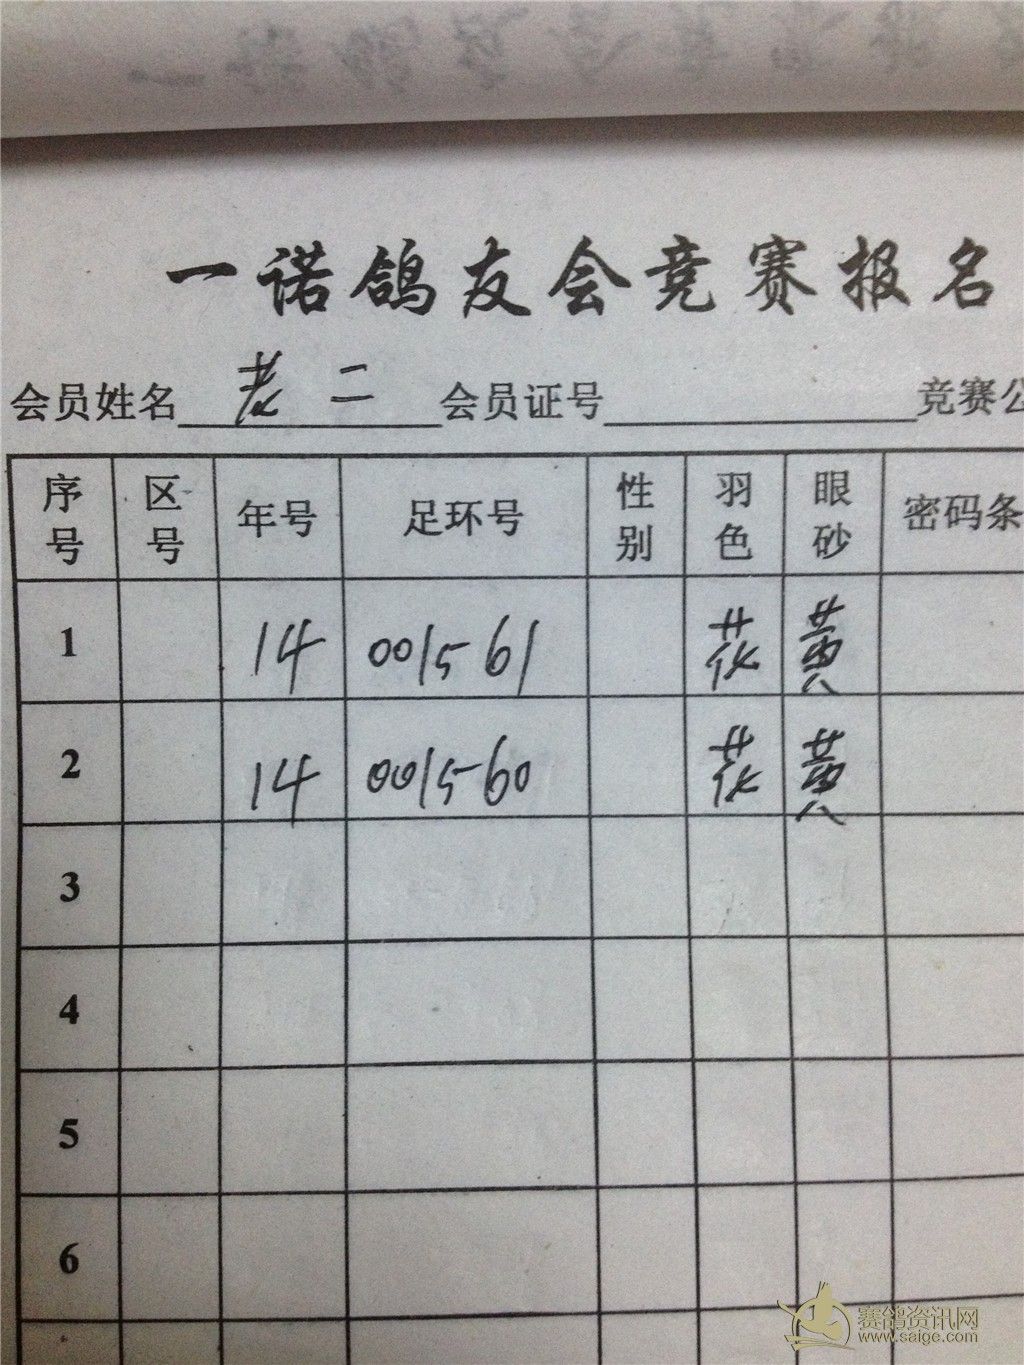 一诺鸽友会竞赛报名
会员姓名 老二 会员证号 竞赛公
序号 区号 年号 足环号 性别 羽色 眼砂 密码条
1 14 001561 花 黄
2 14 001560 花 黄
3
4
5
6
赛鸽资讯网
www.saige.com